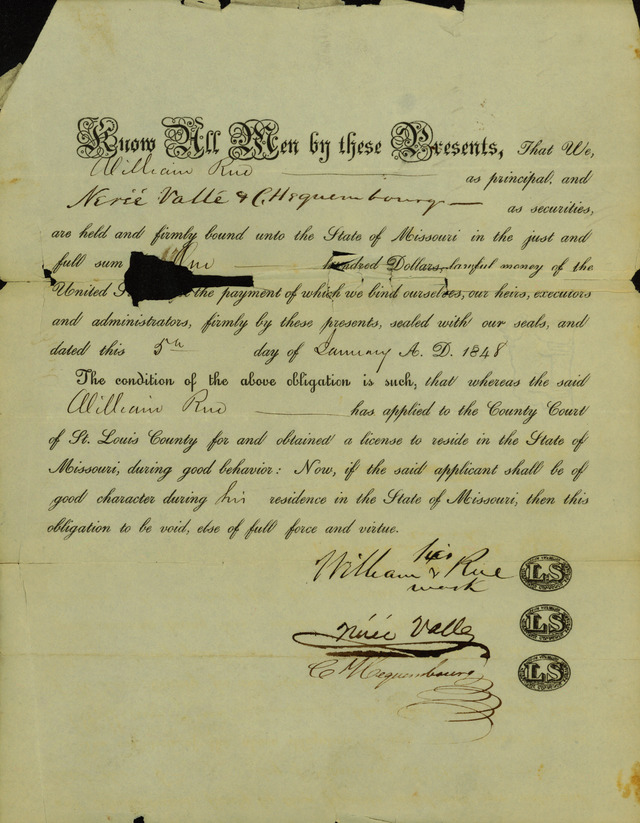 Know All Men by these Presents, That We,
William Rue as principal, and
Neréé Vallé & C. Hequembourg as securities,
are held and firmly bound unto the State of Missouri in the just and
full sum hundred Dollars, lawful money of the
United the payment of which we bind ourselves, our heirs, executors
and administrators, firmly by these presents, sealed with our seals, and
dated this 5th day of January A. D. 1848
The condition of the above obligation is such, that whereas the said
William Rue has applied to the County Court
of St. Louis County for and obtained a license to reside in the State of
Missouri, during good behavior: Now, if the said applicant shall be of
good character during his residence in the State of Missouri, then this
obligation to be void, else of full force and virtue.
his
William x Rue LS
mark
Neréé Valle LS
C Hequembourg LS